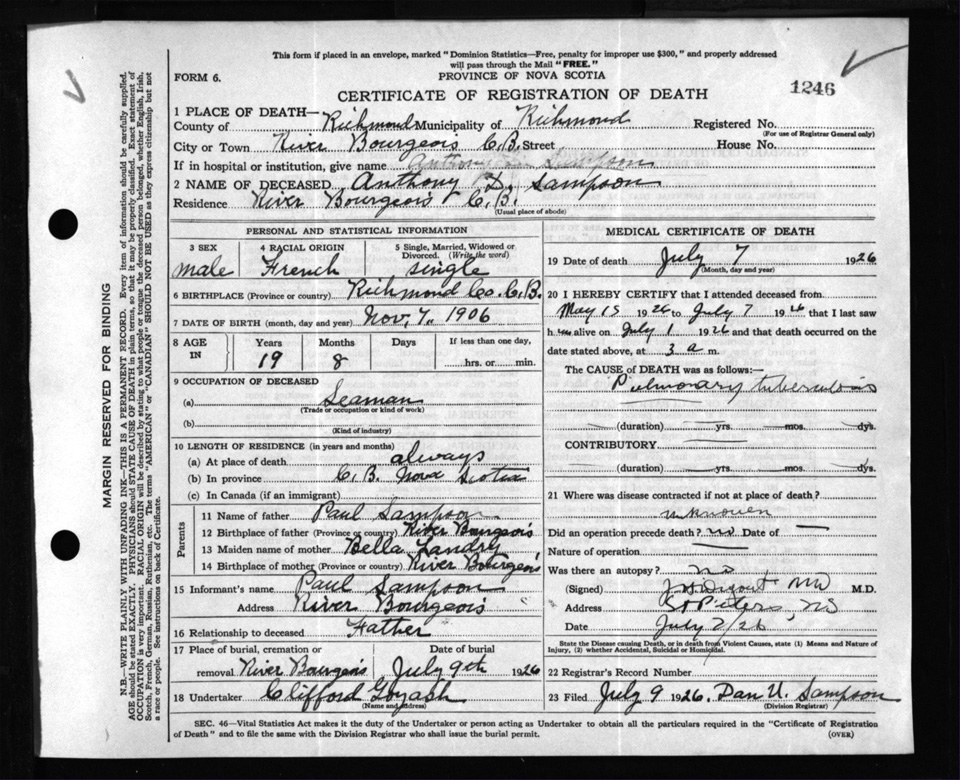 This form if placed in an envelope, marked "Dominion Statistics—Free, penalty for improper use $300," and properly addressed
will pass through the Mail "FREE."
FORM 6.
PROVINCE OF NOVA SCOTIA
CERTIFICATE OF REGISTRATION OF DEATH
1246
1 PLACE OF DEATH—
County of Richmond Municipality of Richmond Registered No.
(For use of Registrar General only)
City or Town River Bourgeois C.B. Street House No.
If in hospital or institution, give name Sampson
2 NAME OF DECEASED Anthony D. Sampson
Residence River Bourgeois C.B.
(Usual place of abode)
PERSONAL AND STATISTICAL INFORMATION
3 SEX 4 RACIAL ORIGIN 5 Single, Married, Widowed or
Divorced. (Write the word)
male French single
6 BIRTHPLACE (Province or country) Richmond Co. C.B.
7 DATE OF BIRTH (month, day and year) Nov. 7. 1906
8 AGE IN Years Months Days If less than one day,
19 8 hrs. or min.
9 OCCUPATION OF DECEASED
(a) Seaman
(Trade or occupation or kind of work)
(b)
(Kind of industry)
10 LENGTH OF RESIDENCE (in years and months)
(a) At place of death always
(b) In province C.B. Nova Scotia
(c) In Canada (if an immigrant)
Parents
11 Name of father Paul Sampson
12 Birthplace of father (Province or country) River Bourgeois
13 Maiden name of mother Bella Landry
14 Birthplace of mother (Province or country) River Bourgeois
15 Informant's name Paul Sampson
Address River Bourgeois
16 Relationship to deceased Father
17 Place of burial, cremation or Date of burial
removal River Bourgeois July 9th 1926
18 Undertaker Clifford
(Name and address)
MEDICAL CERTIFICATE OF DEATH
19 Date of death July 7 1926
(Month, day and year)
20 I HEREBY CERTIFY that I attended deceased from
May 15 1926 to July 7 1926 that I last saw
h im alive on July 1 1926 and that death occurred on the
date stated above, at 3 a m.
The CAUSE OF DEATH was as follows:—
Pulmonary tuberculosis
(duration) yrs. mos. dys.
CONTRIBUTORY
(duration) yrs. mos. dys.
21 Where was disease contracted if not at place of death?
unknown
Did an operation precede death? no Date of
Nature of operation
Was there an autopsy? no
(Signed) MD M.D.
Address St Peters, NS
Date July 7/26
State the Disease causing Death, or in death from Violent Causes, state (1) Means and Nature of
Injury, (2) whether Accidental, Suicidal or Homicidal.
22 Registrar's Record Number
23 Filed July 9 1926. Dan U. Sampson
(Division Registrar)
SEC. 46—Vital Statistics Act makes it the duty of the Undertaker or person acting as Undertaker to obtain all the particulars required in the "Certificate of Registration
of Death" and to file the same with the Division Registrar who shall issue the burial permit.
(OVER)
MARGIN RESERVED FOR BINDING
N.B.—WRITE PLAINLY WITH UNFADING INK—THIS IS A PERMANENT RECORD. Every item of information should be carefully supplied.
AGE should be stated EXACTLY. PHYSICIANS should STATE CAUSE OF DEATH in plain terms, so that it may be properly classified. Exact statement of
OCCUPATION is very important. RACIAL ORIGIN will be described by stating to what people or tongue the deceased person belonged, whether English, Irish,
Scotch, French, German, Russian, Ruthenian, etc. The terms "AMERICAN" or "CANADIAN" SHOULD NOT BE USED as they express citizenship but not
a race or people. See instructions on back of Certificate.